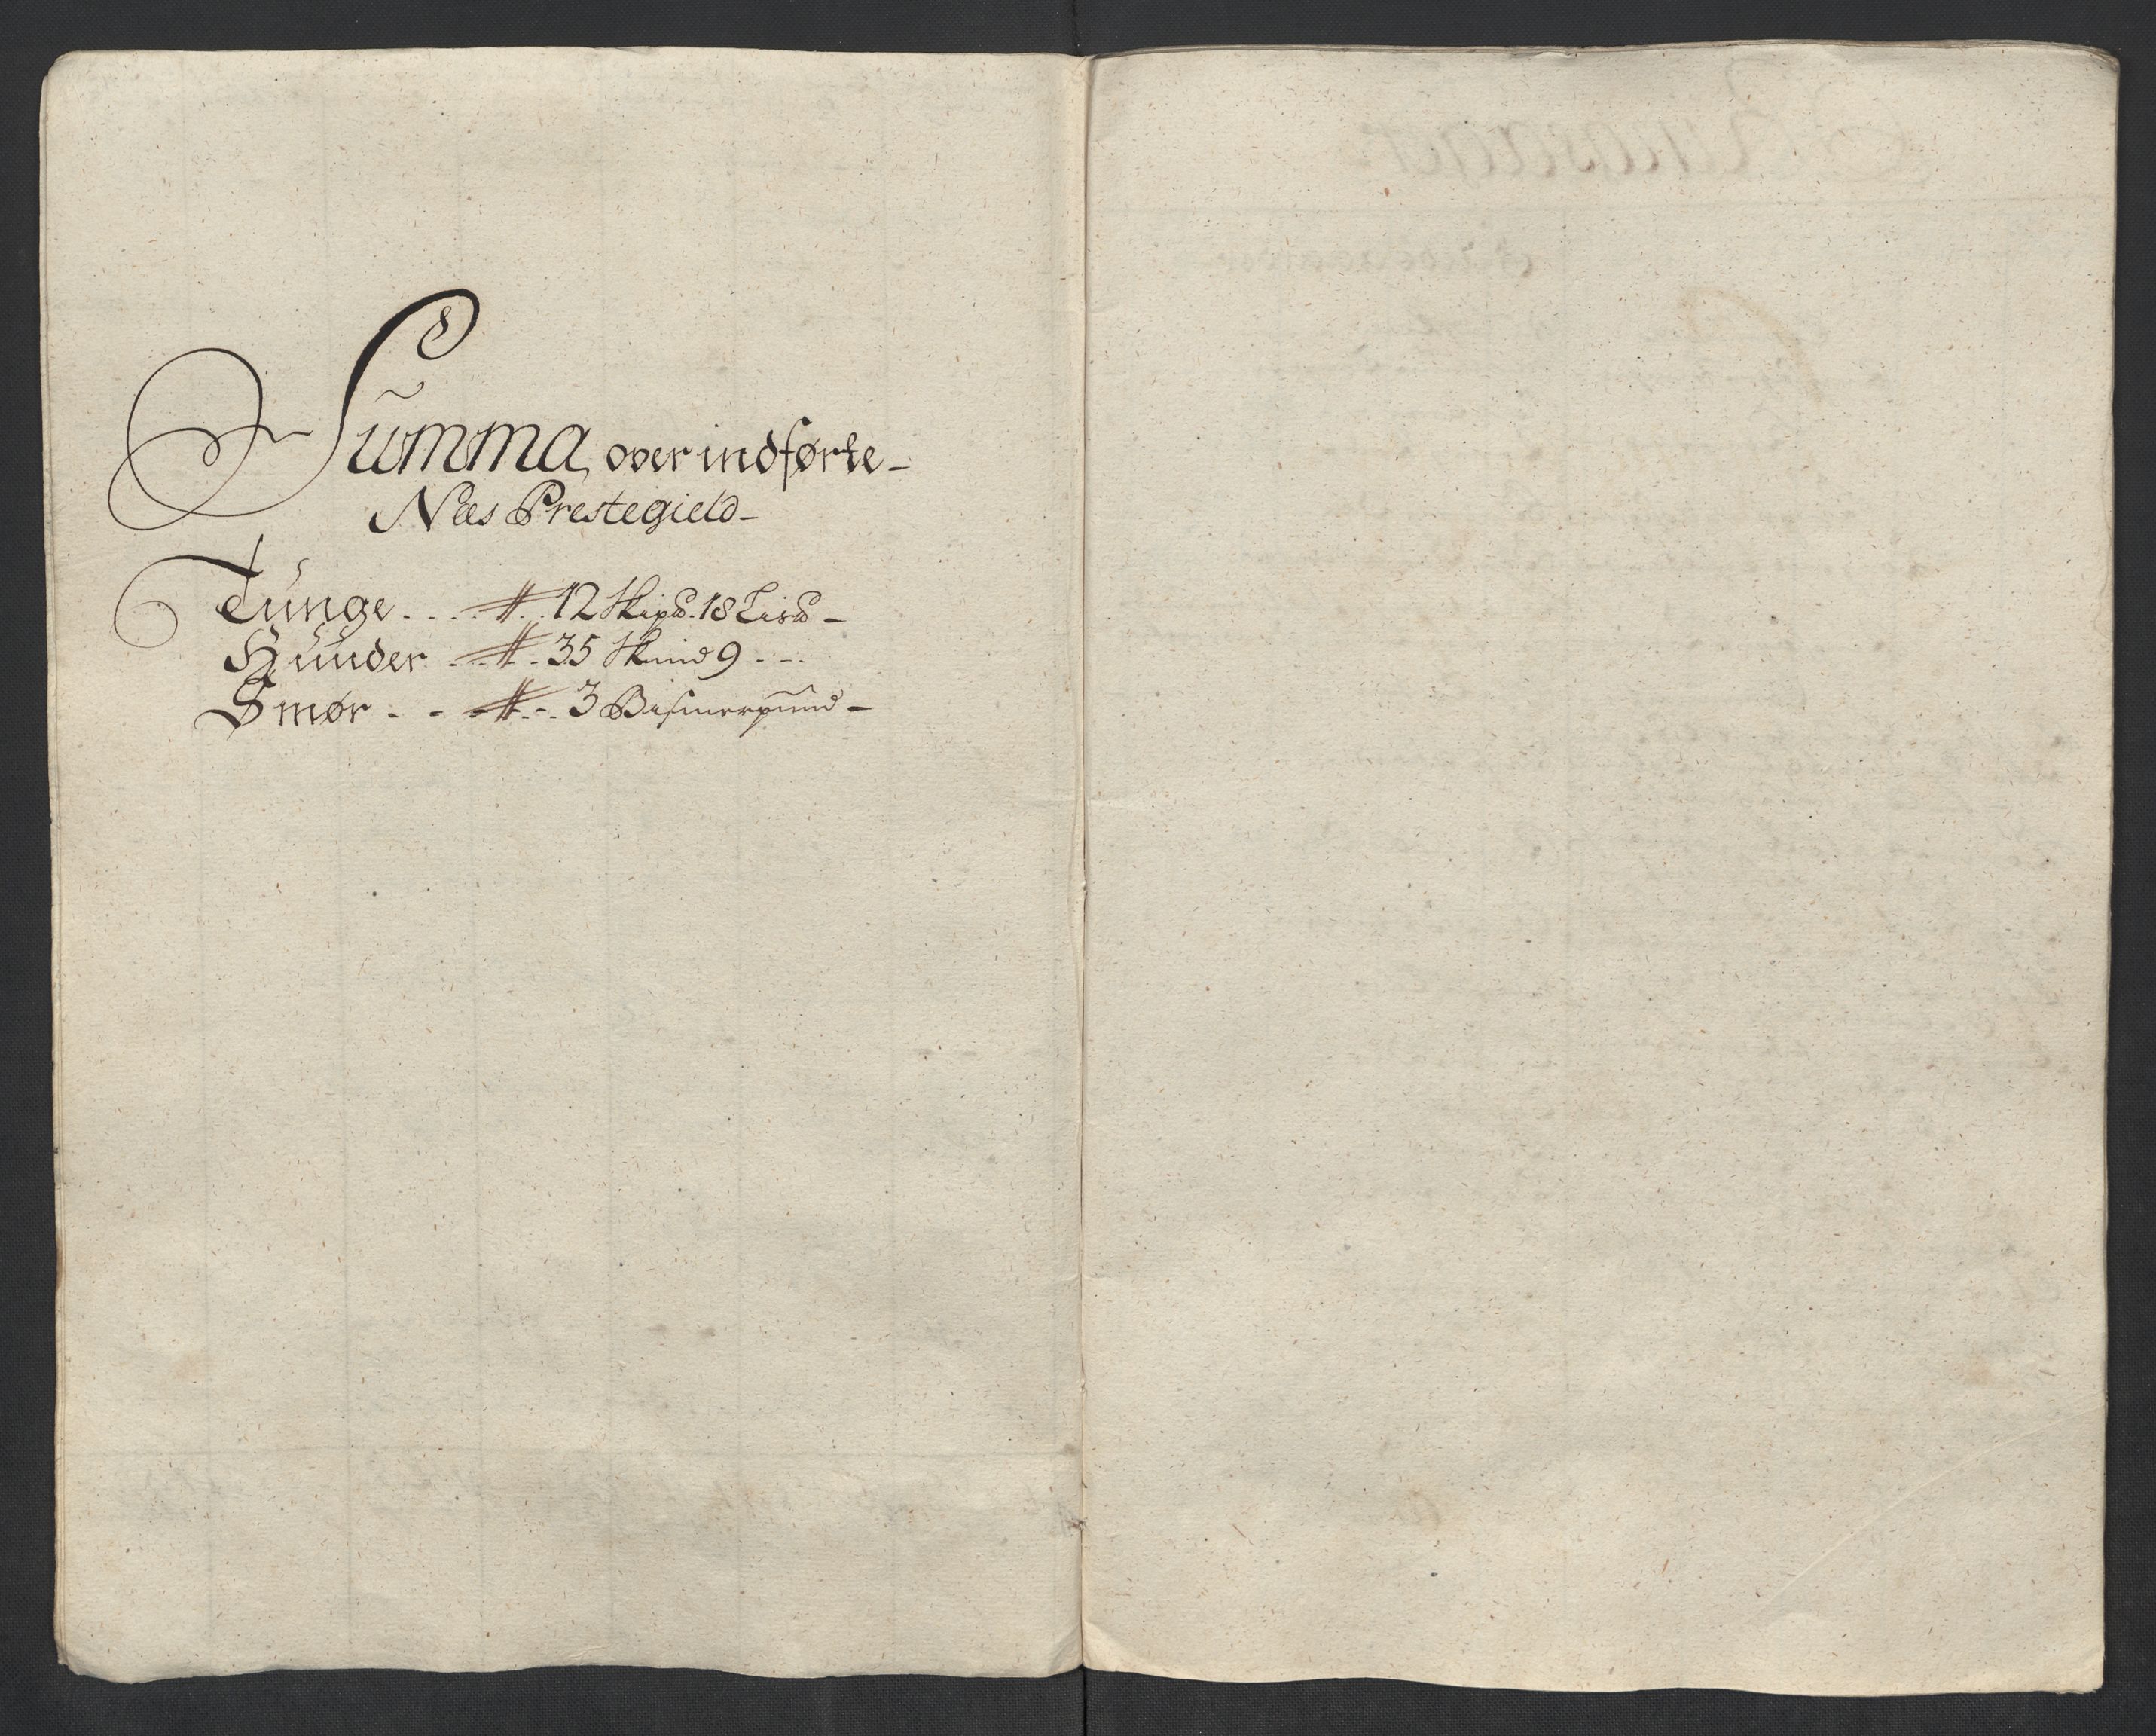 Summa over indførte-
Næs Prestegield-
Tunge . . . . # . 12 Skip℔. 18 Lis℔ -
Huuder . . # . 35 Skind 9 . - -
Smør . - - # . - . 3 Bismerpund -